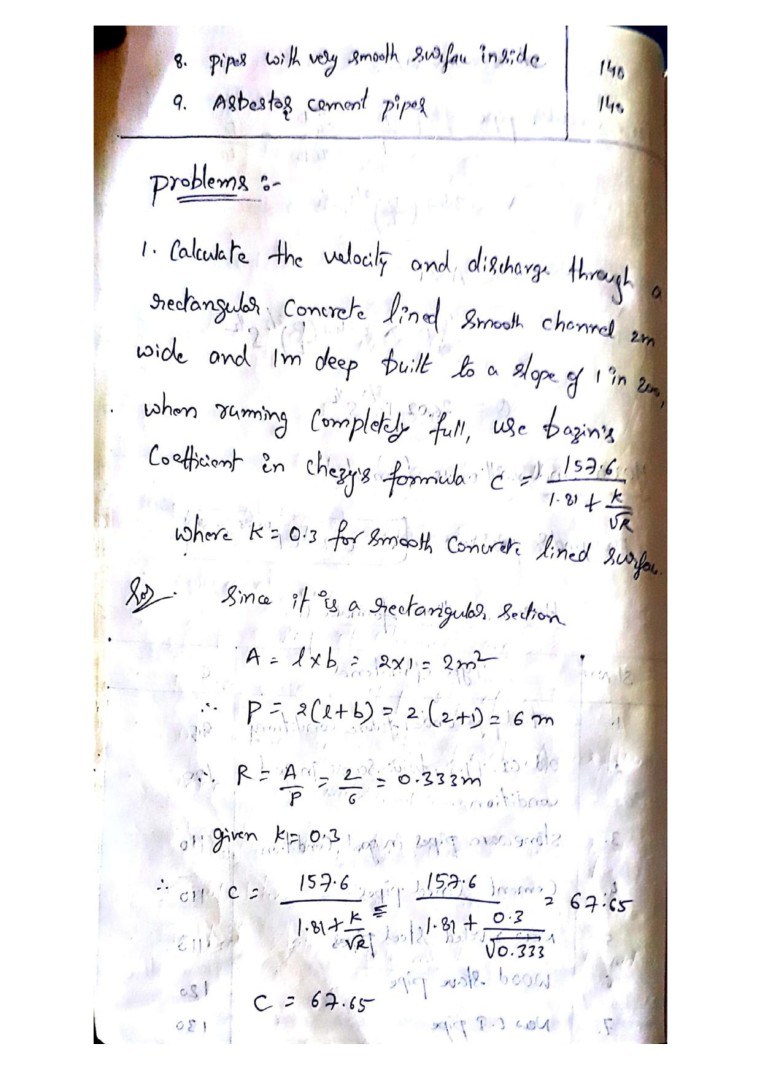 8. pipes with very smooth surface inside 140
9. Asbestos cement pipes 140
problems :-
1. Calculate the velocity and discharge through a
rectangular concrete lined smooth channel 2m
wide and 1m deep built to a slope of 1 in
when running completely full, use bazin's
Coefficient in chezy's formula C = 157.6 / 1.81 + K/√R
where K = 0.3 for smooth concrete lined surface.
Sol. Since it is a rectangular section
A = l×b = 2×1 = 2m²
∴ P = 2(l+b) = 2(2+1) = 6 m
∴ R = A/P = 2/6 = 0.333m
given K = 0.3
∴ C = 157.6 / 1.81 + K/√R = 157.6 / 1.81 + 0.3/√0.333 = 67.65
C = 67.65